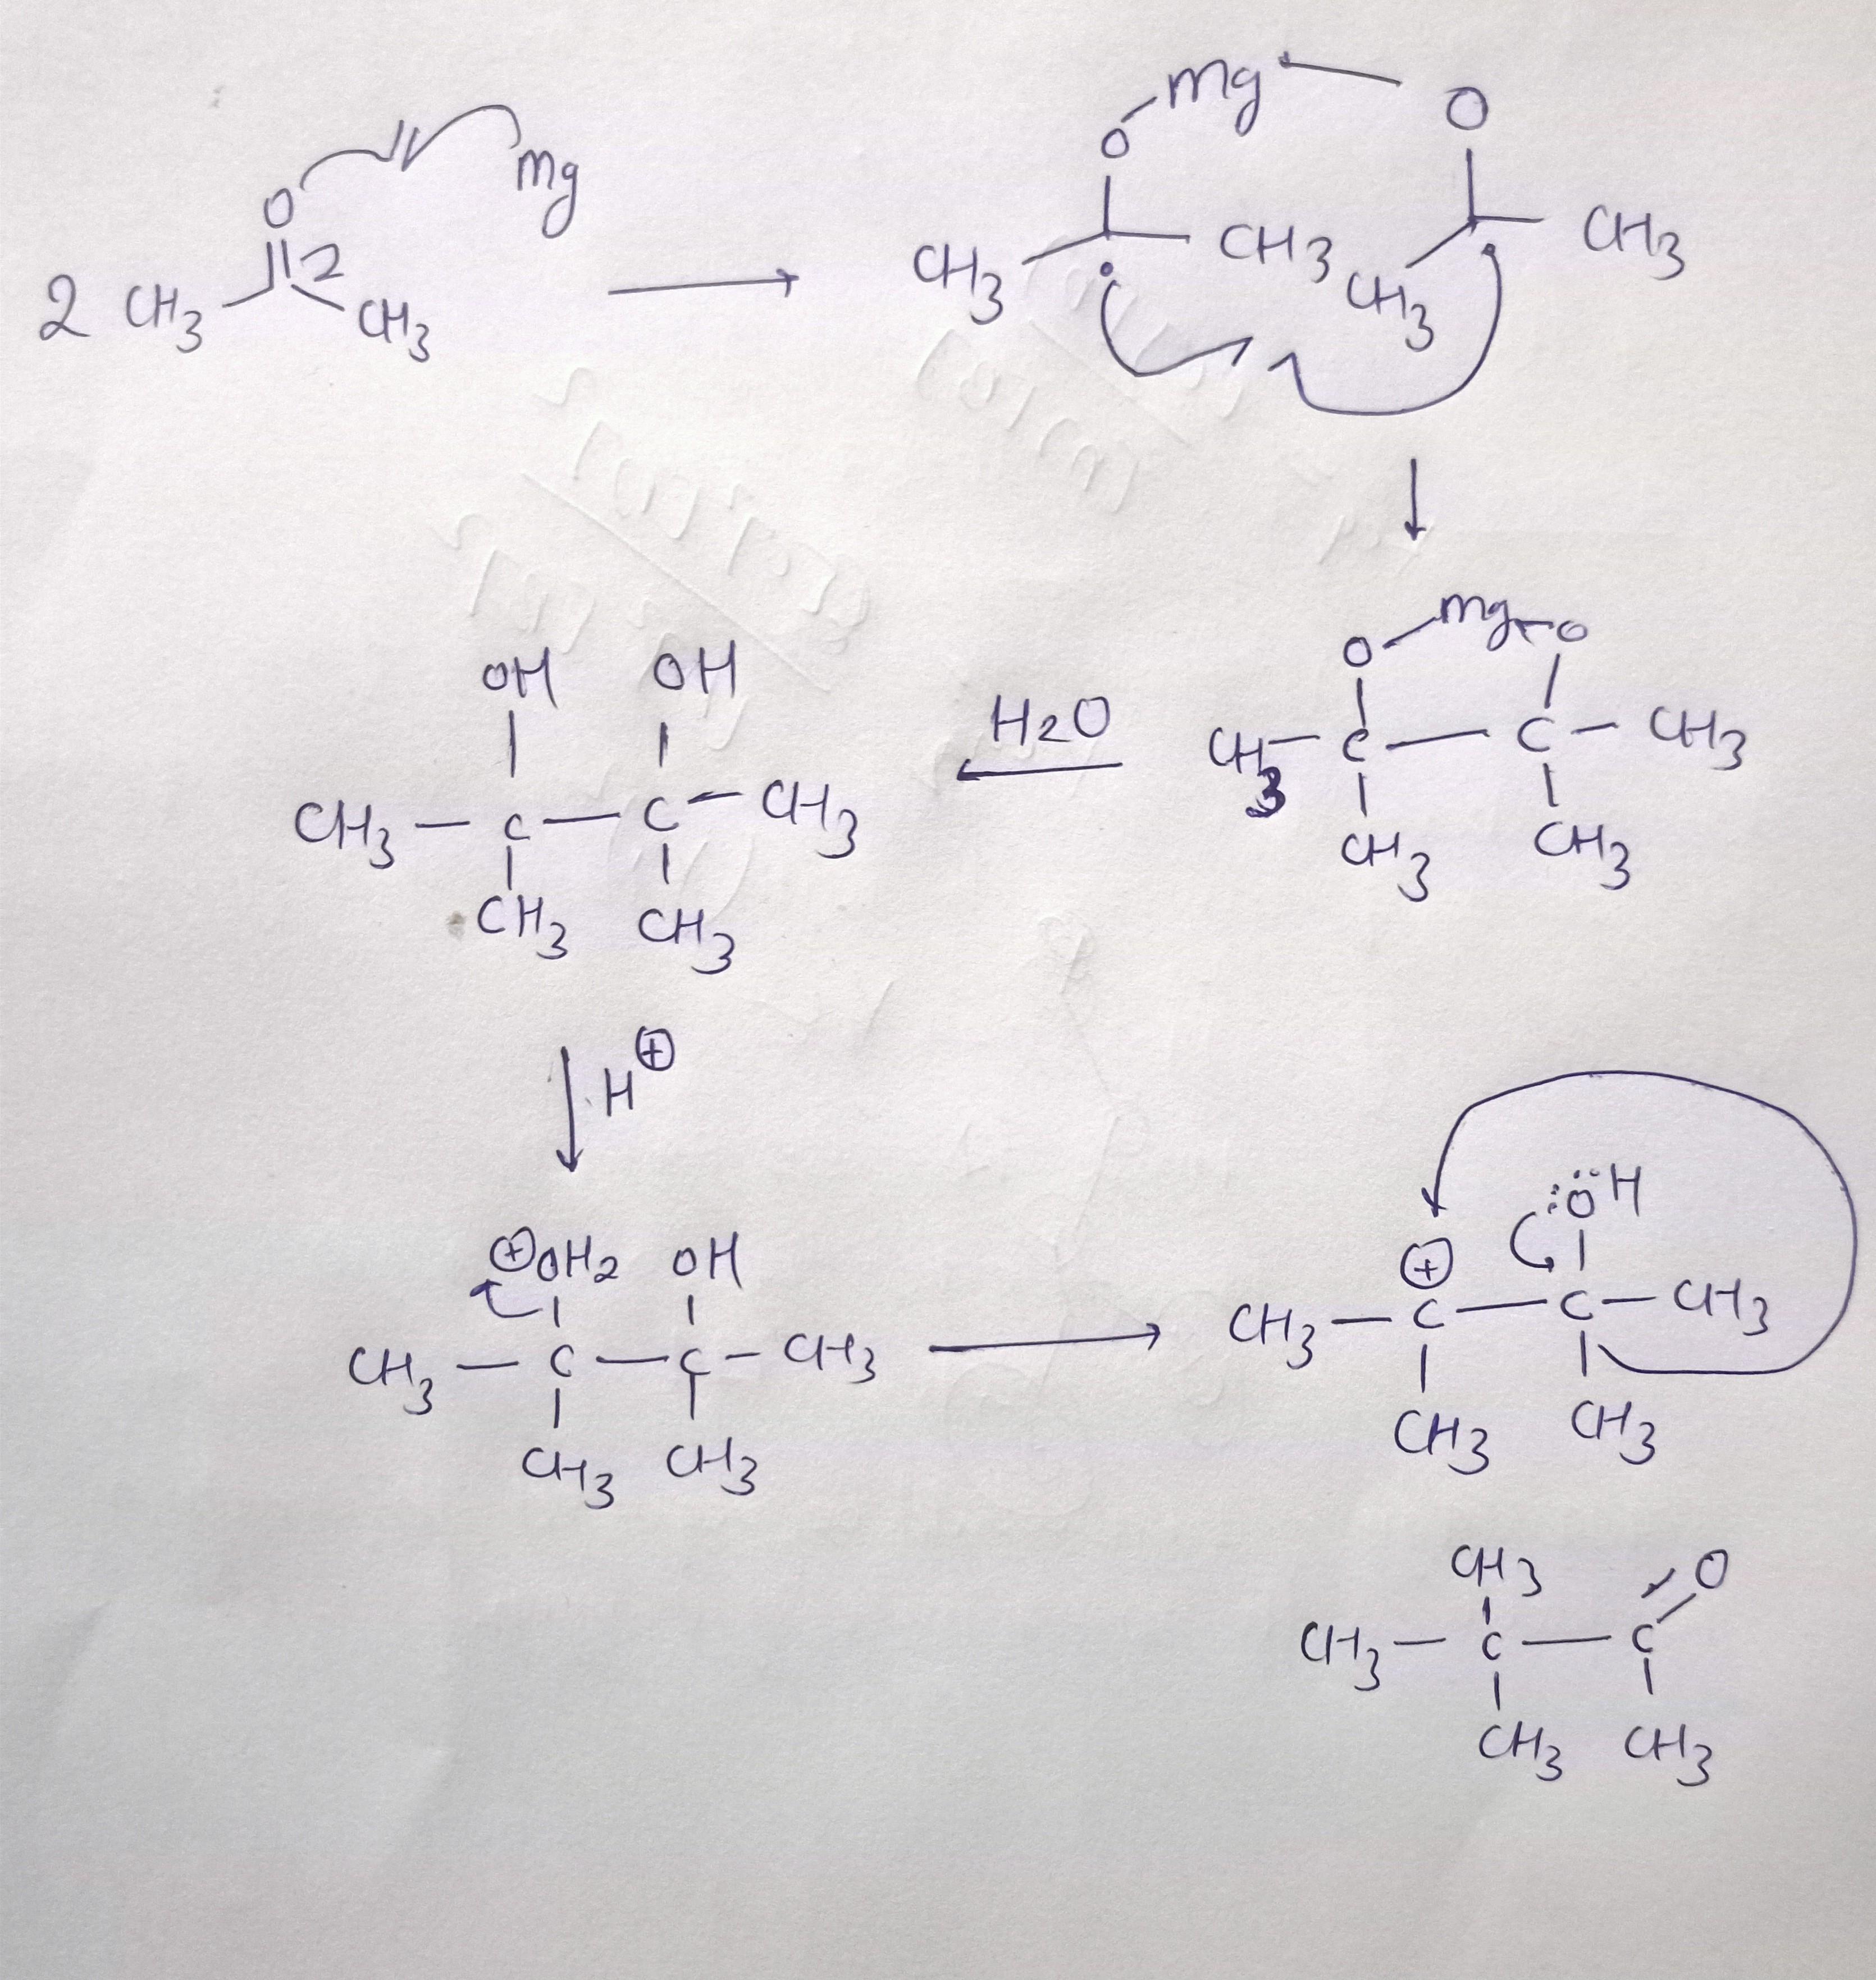 O Mg
2 CH3 2 CH3
O Mg O
CH3 CH3 CH3 CH3
O Mg O
CH3 C C CH3
CH3 CH3
H2O
OH OH
CH3 C C CH3
CH3 CH3
H⊕
⊕OH2 OH
CH3 C C CH3
CH3 CH3
⊕ :ÖH
CH3 C C CH3
CH3 CH3
CH3 O
CH3 C C
CH3 CH3